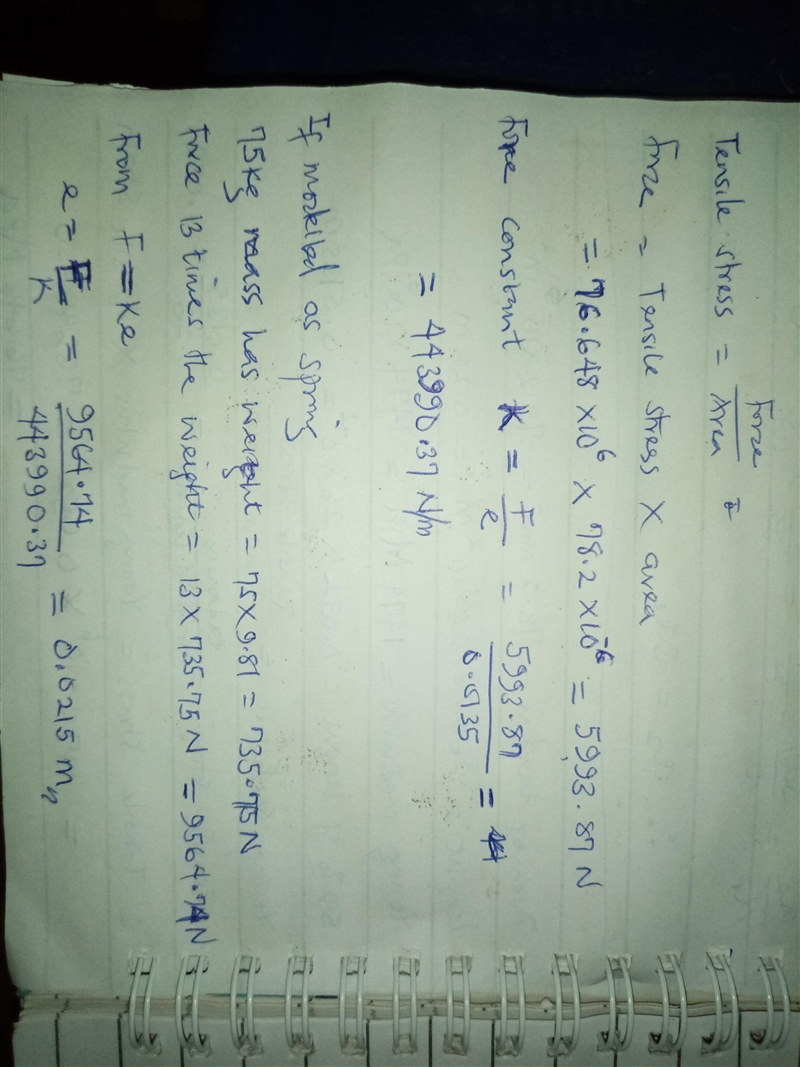 Tensile stress = Force / Area =
force = Tensile stress × area
= 76.648 × 10⁶ × 78.2 × 10⁻⁶ = 5993.87 N
Force constant K = F / e = 5993.87 / 0.0135 =
= 443990.37 N/m
If modelled as spring
75kg mass has weight = 75 × 9.81 = 735.75 N
Force 13 times the weight = 13 × 735.75 N = 9564.74 N
from F = Ke
e = F / K = 9564.74 / 443990.37 = 0.0215 m